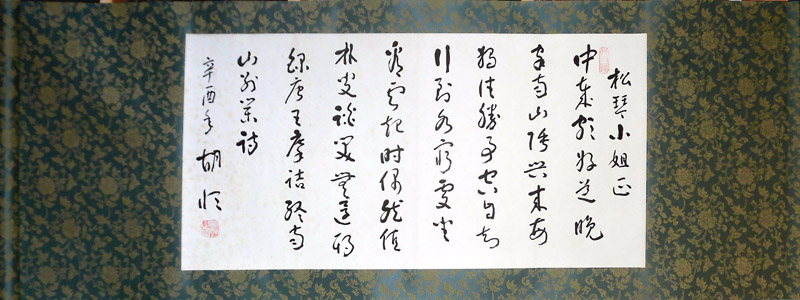 松琴小姐正
中歲頗好道晚
家南山陲興來每
獨往勝事空自知
行到水窮處坐
看雲起時偶然值
林叟談笑無還期
錄唐王摩詰終南
山別業詩
辛酉年 胡